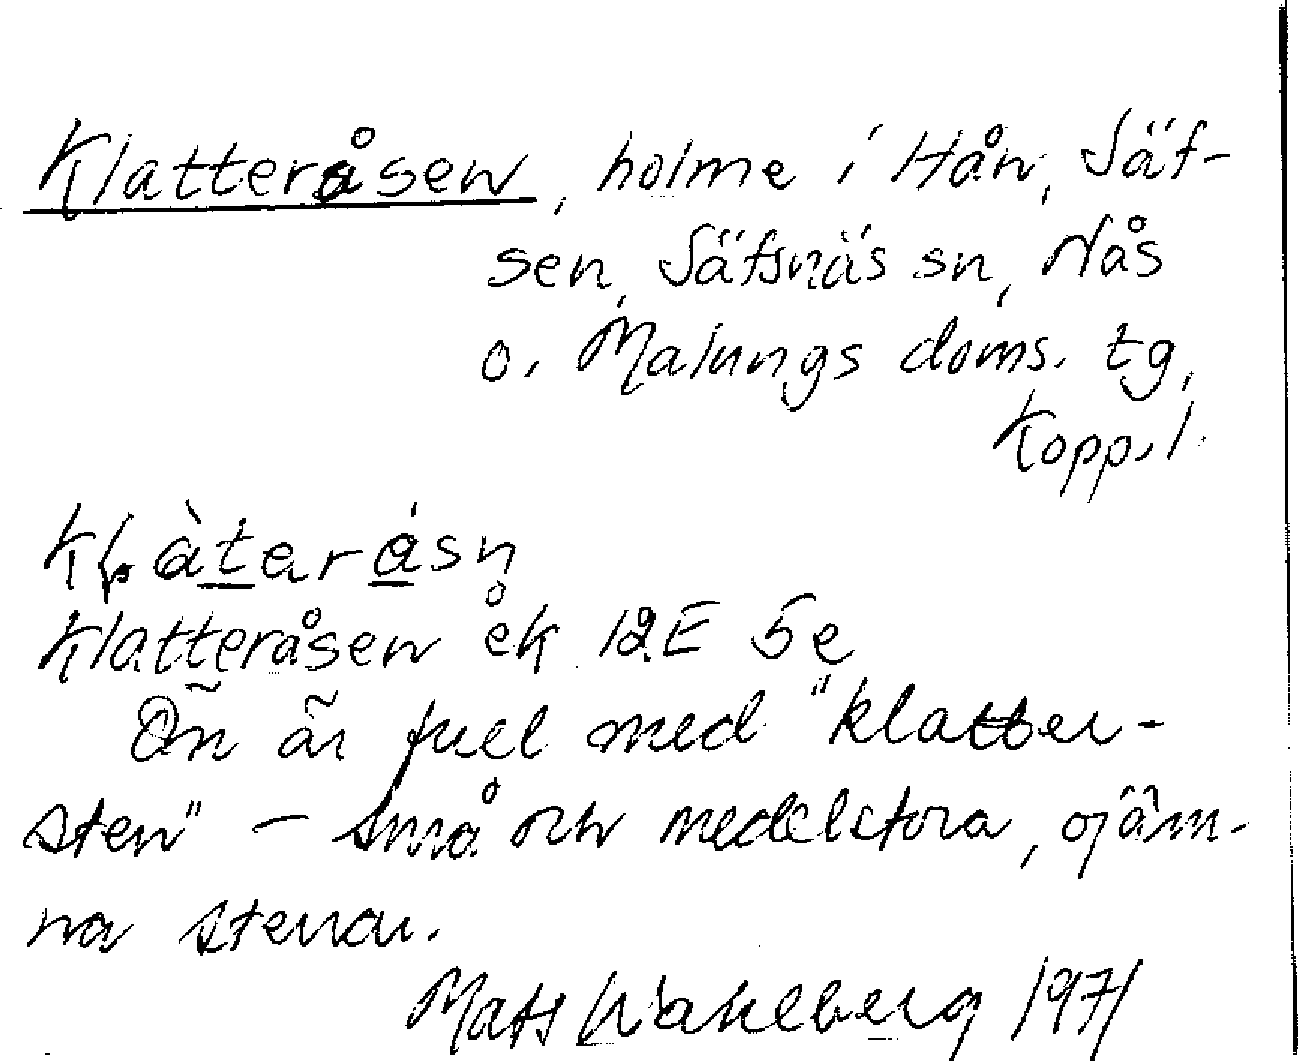 Klatteråsen, holme i Hån, Säf-
sen, Säfsnäs sn, Nås
o. Malungs doms. tg,
Kopp. l.
Klatteråsen ek 12E 5e
Ön är full med "klatter-
sten" – små och medelstora, ojäm-
na stenar.
Mats Wahlberg 1971